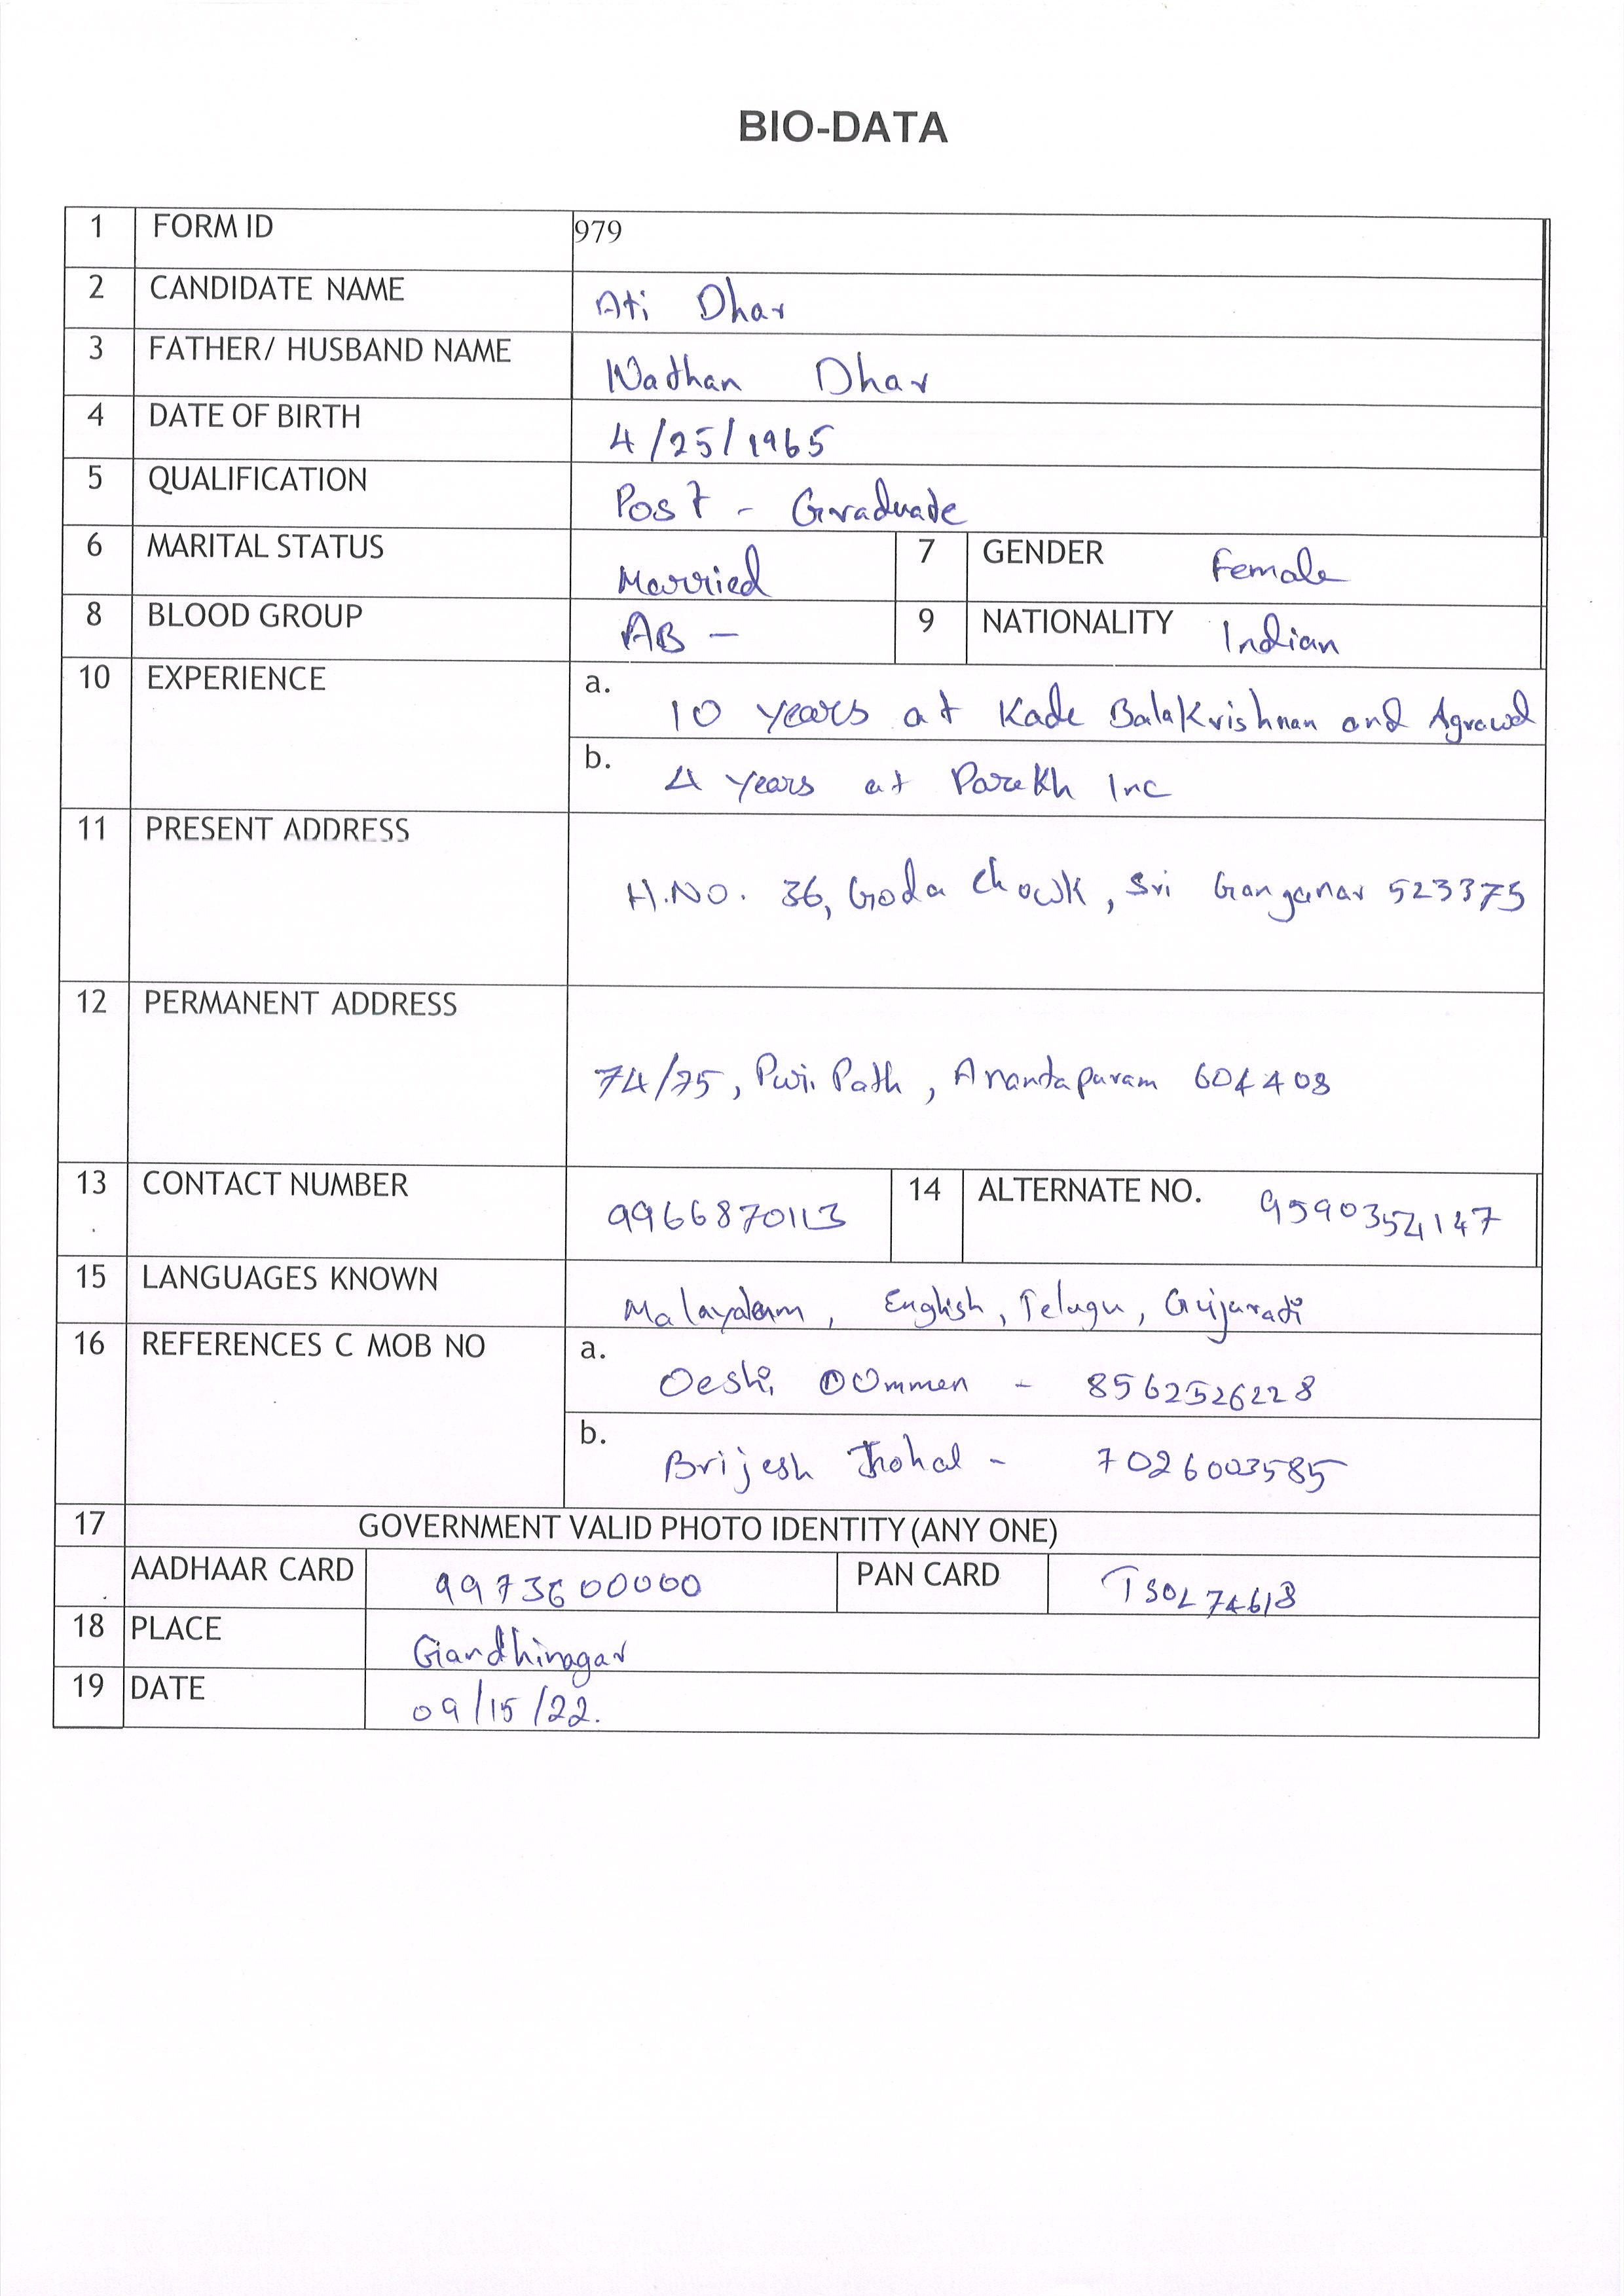 BIO-DATA
1 FORM ID 979
2 CANDIDATE NAME Ati Dhar
3 FATHER/ HUSBAND NAME Nathan Dhar
4 DATE OF BIRTH 4/25/1965
5 QUALIFICATION Post - Graduate
6 MARITAL STATUS Married 7 GENDER Female
8 BLOOD GROUP AB - 9 NATIONALITY Indian
10 EXPERIENCE a. 10 years at Kade Balakrishnan and Agrawal
b. 4 years at Parekh Inc
11 PRESENT ADDRESS
H.NO. 36, Goda Chowk, Sri Ganganar 523375
12 PERMANENT ADDRESS
74/75, Path, Anantapuram 604408
13 CONTACT NUMBER 9966870113 14 ALTERNATE NO. 9590354147
15 LANGUAGES KNOWN Malayalam, English, Telugu, Gujarati
16 REFERENCES C MOB NO a. Oeshi OOmmen - 8562526228
b. Brijesh - 7026003585
17 GOVERNMENT VALID PHOTO IDENTITY (ANY ONE)
AADHAAR CARD 9973600000 PAN CARD TSOL74618
18 PLACE Gandhinagar
19 DATE 09/15/22.